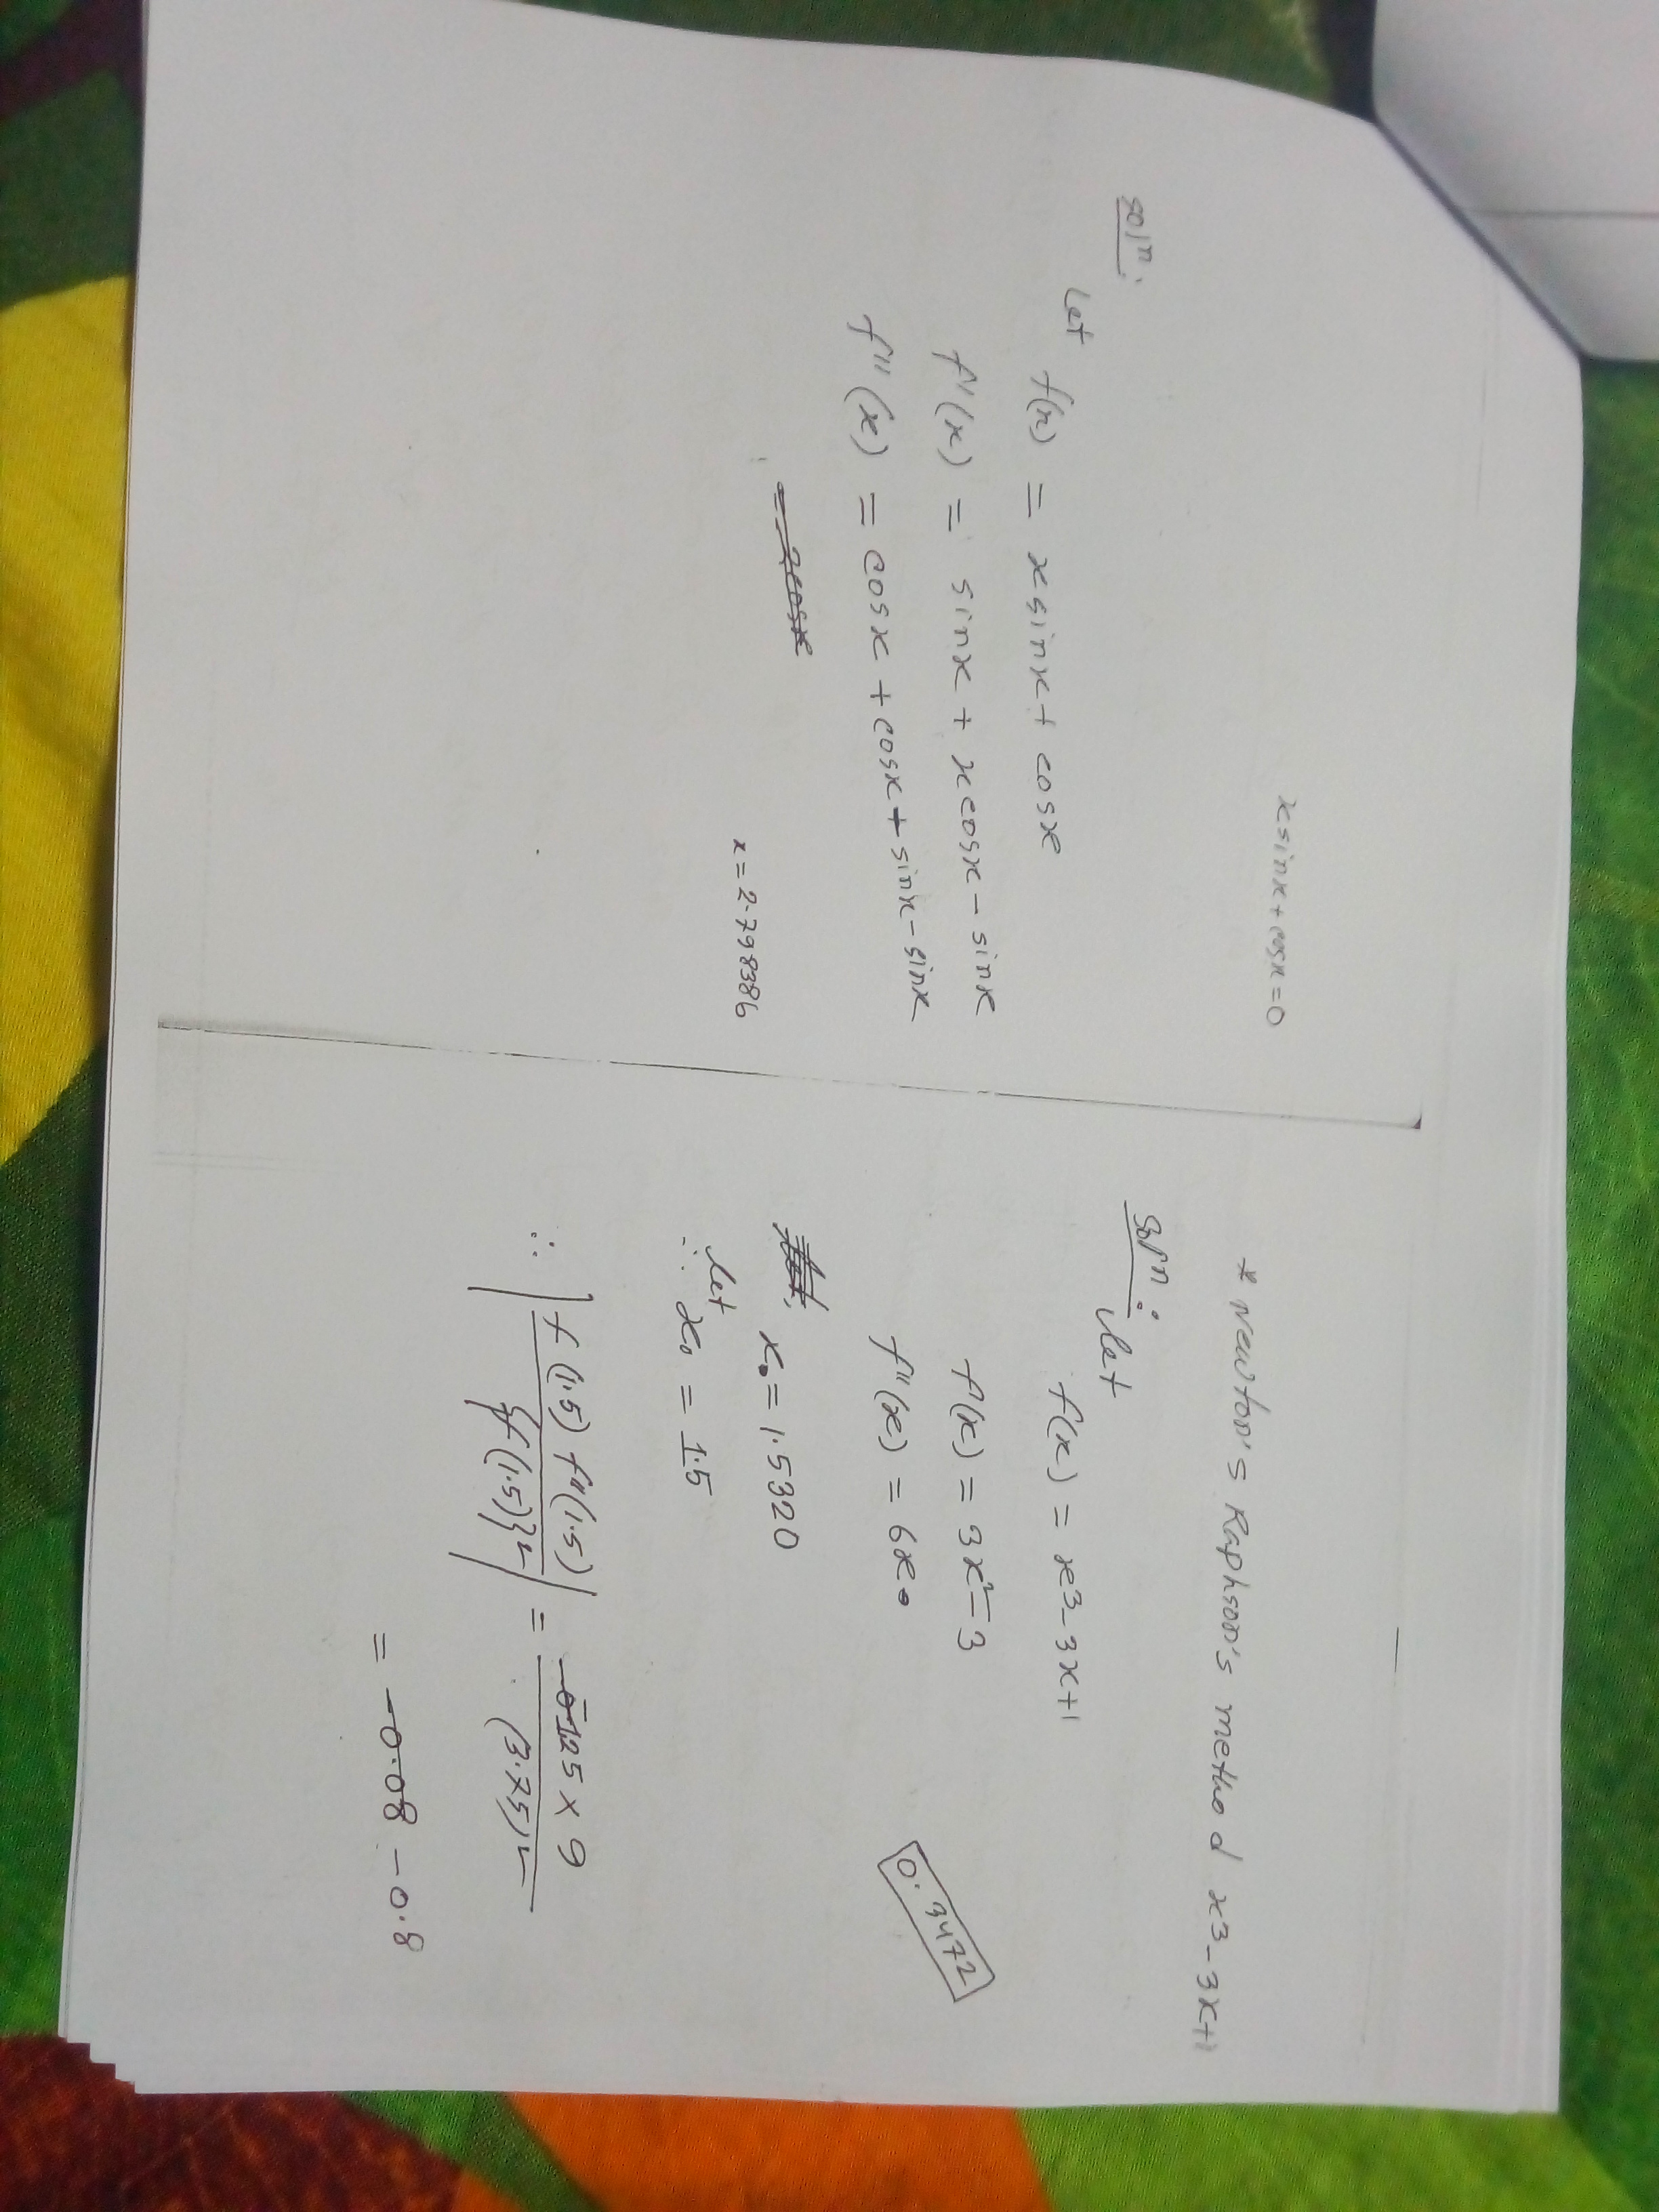 xsinx+cosx=0
solⁿ:
Let
f(x) = xsinx+ cosx
f'(x) = sinx + xcosx - sinx
f''(x) = cosx + cosx + sinx - sinx
= 2cosx
x = 2.798386
* Newton's Raphson's method x³-3x+1
Solⁿ:
let
f(x) = x³-3x+1
f'(x) = 3x²-3
f''(x) = 6x
0.3472
let,
x₀ = 1.5320
let
∴ x₀ = 1.5
∴ |f(1.5) f''(1.5) / {f(1.5)}²| = -0.125 × 9 / (3.75)²
= -0.08 -0.8